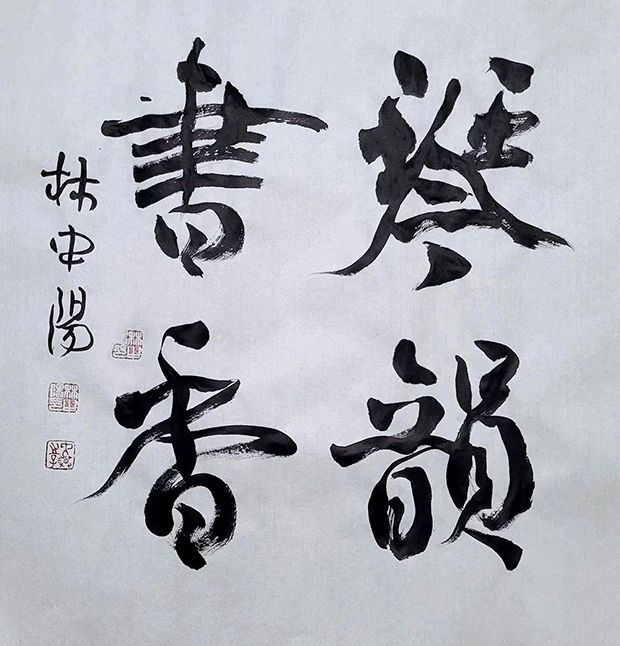 琴韻
書香
林中陽